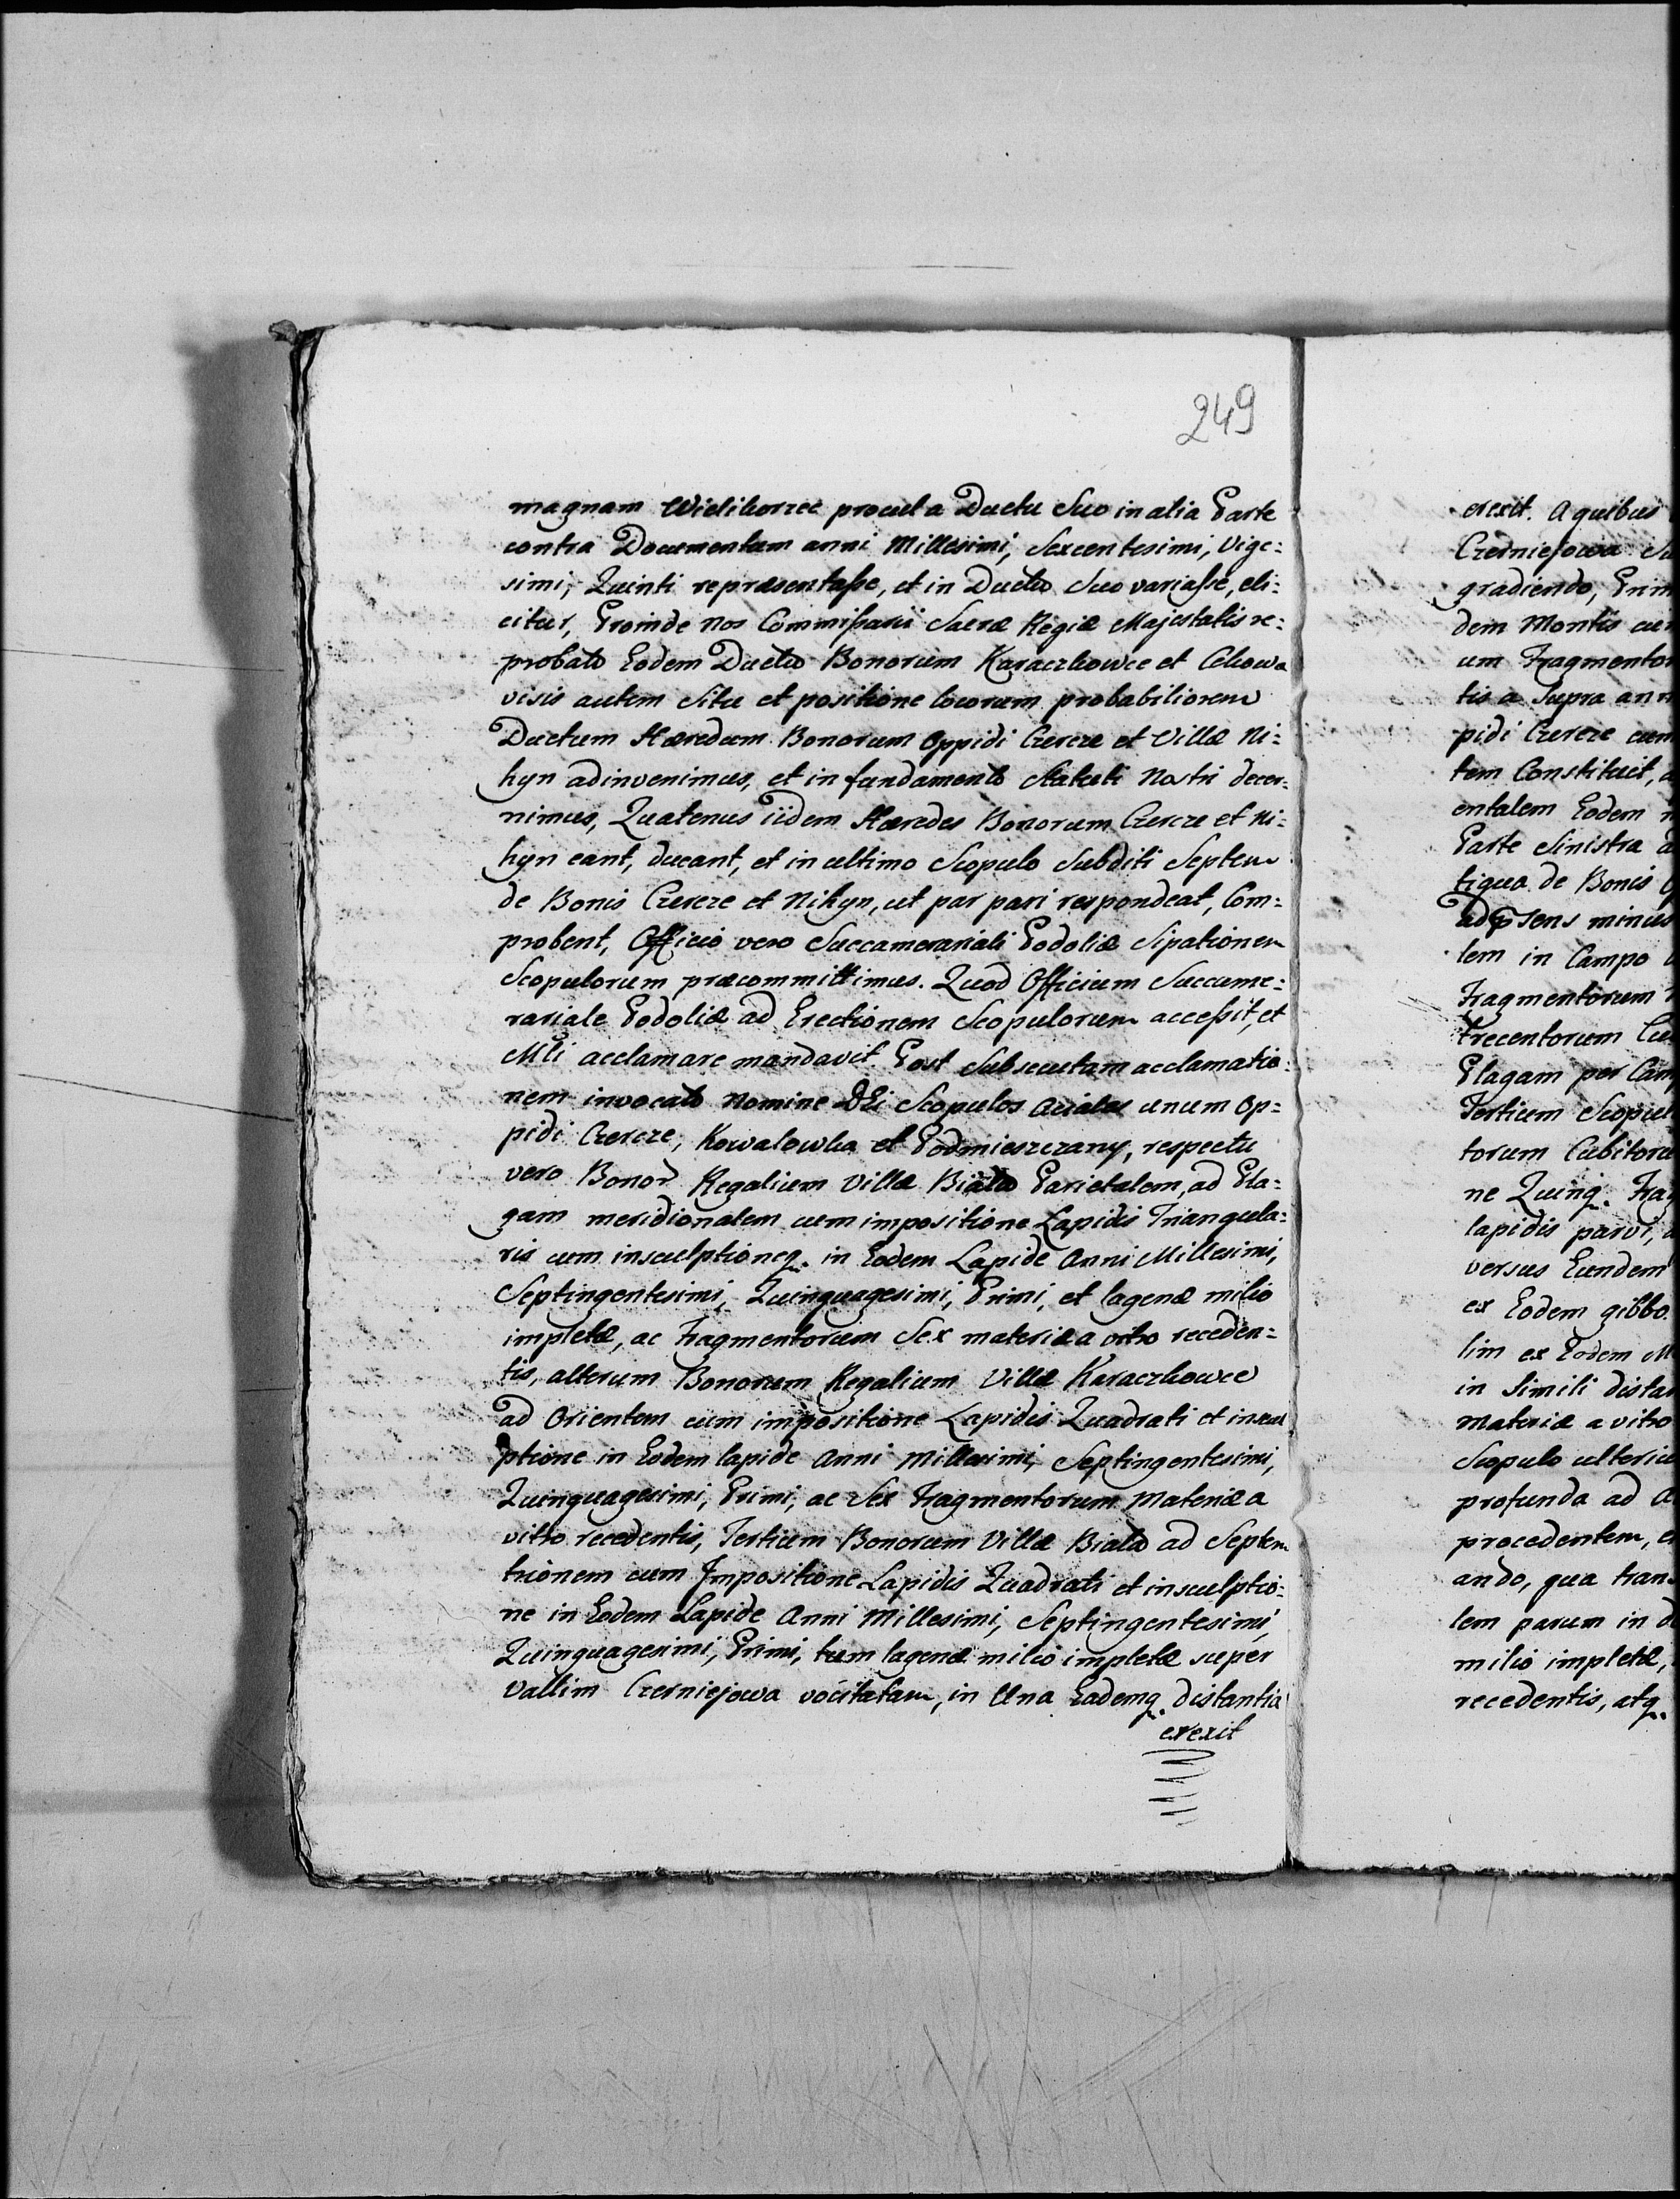 249
magnam Wielihorzec procul a Ductu Suo in alia Parte
contra Documentum anni Millesimi, Sexcentesimi, Vige=
simi, Quinti repræsentaſse, et in Ductu Suo variaſse, eli=
citur, Proinde nos Commiſsarii Sacræ Regiæ Majestatis re=
probato Eodem Ductu Bonorum Karaczkowce et
visis autem Situ et positione locorum probabiliorem
Ductum Hæredum Bonorum Oppidi Czercze et Villæ Ni=
hyn adinvenimus, et in fundamento Statuti Nostri decer=
nimus, Quatenus iidem Hæredes Bonorum Czercze et Ni=
hyn eant, ducant, et in ultimo Scopulo Subditi Septem
de Bonis Czercze et Nihyn, ut par pari respondeat, Com=
probent, Officio vero Succamerariali Podoliæ Sipationem
Scopulorum præcommittimus. Quod Officium Succame=
rariale Podoliæ ad Erectionem Scopulorum acceſsit, et
Mli acclamare mandavit. Post Subsecutam acclamatio=
nem invocato Nomine DEi Scopulos Aciales unum Op=
pidi Czercze, Kowalowka et Podmieszczany, respectu
vero Bonor Regalium Villæ Biała Parietalem, ad Pla=
gam meridionalem cum impositione Lapidis Triangula=
ris cum insculptioneq. in Eodem Lapide Anni Millesimi,
Septingentesimi, Quinquagesimi, Primi, et lagenæ milio
impletæ, ac Fragmentorum Sex materiæ a vitro receden=
tis, alterum Bonorum Regalium Villæ Karaczkowce
ad Orientem cum impositione Lapidis Quadrati et inscul
ptione in Eodem lapide Anni Millesimi, Septingentesimi,
Quinquagesimi, Primi, ac Sex Fragmentorum Materiæ a
vitro recedentis, Tertium Bonorum Villæ Biała ad Septem
trionem cum Impositione Lapidis Quadrati et insculptio=
ne in Eodem Lapide Anni Millesimi, Septingentesimi,
Quinquagesimi, Primi, tum lagenæ milio impletæ super
Vallim Czerniejowa vocitatam, in Una Eademq. distantia
erexit
erexit. A quibus
Czerniejowa
gradiendo, Prim
dem Montis cum
um Fragmentor
tis a Supra ann
pidi Czercze cum
tem Constituit,
entalem Eodem
Parte Sinistra
tiqua de Bonis
minus
lem in Campo
Fragmentorum
trecentorum Cu
Plagam per Cam
Tertium Scopul
torum Cubitoru
ne Quinq. Frag
lapidis parvi,
versus Eundem
ex Eodem gibbo
lim ex Eodem M
in Simili distan
Materiæ a vitro
Scopulo ulteriu
profunda ad
procedentem,
ando, qua trans
lem parum in
milio impletæ,
recedentis, atq.